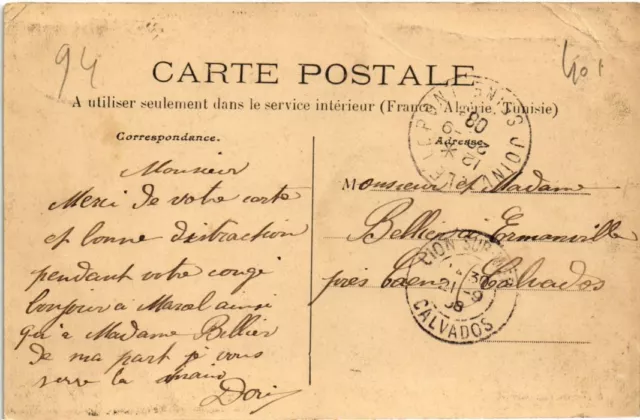 94
401
CARTE POSTALE
A utiliser seulement dans le service intérieur (France, Algérie, Tunisie)
Correspondance.
Adresse.
JOINVILLE LE PONT
12
20 - 9
08
Monsieur
Merci de votre carte
et bonne distraction
pendant votre congé
bonjour à Marcel ainsi
qu'à Madame Bellier
de ma part je vous
serre la main
Dori
Monsieur et Madame
Bellier à Ermanville
près Caen Calvados
LION SUR MER
21 - 9
08
CALVADOS